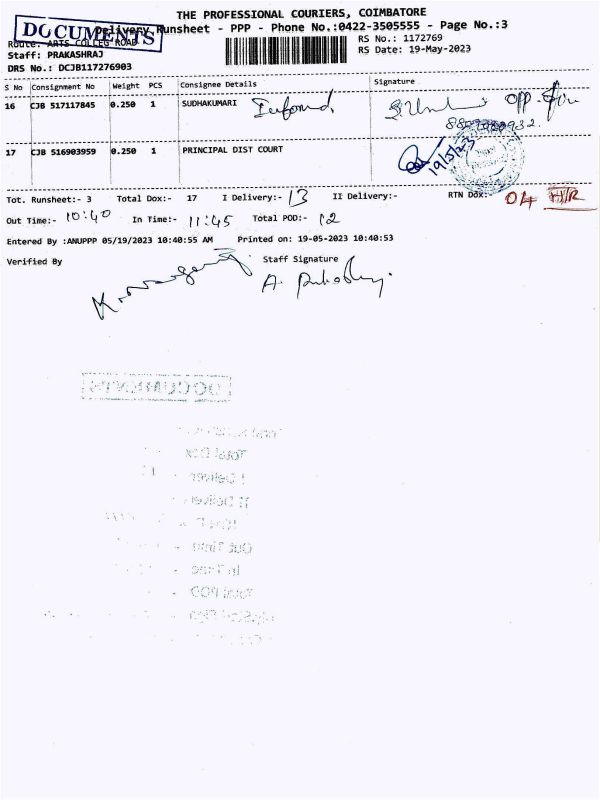 THE PROFESSIONAL COURIERS, COIMBATORE
DOCUMENTS
Delivery Runsheet - PPP - Phone No.:0422-3505555 - Page No.:3
Route: ARTS COLLEG ROAD
RS No.: 1172769
Staff: PRAKASHRAJ
RS Date: 19-May-2023
DRS No.: DCJB117276903
S No Consignment No Weight PCS Consignee Details Signature
16 CJB 517117845 0.250 1 SUDHAKUMARI Informd.
17 CJB 516903959 0.250 1 PRINCIPAL DIST COURT 19/5/23
Tot. Runsheet:- 3 Total Dox:- 17 I Delivery:- 13 II Delivery:- RTN Dox:- 04
Out Time:- 10:40 In Time:- 11:45 Total POD:- 12
Entered By :ANUPPP 05/19/2023 10:40:55 AM Printed on: 19-05-2023 10:40:53
Verified By Staff Signature
DOCUMENTS
Total Dox
I Deliver
II Deliver
Out Time
In Time
Total POD